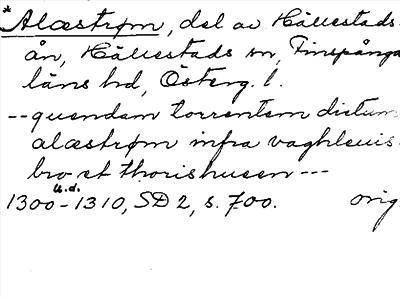 *Alæstrøm, del av Hällestads-
ån, Hällestads sn, Finspånga
läns hd, Österg. l.
-- quendam torrentem dictum
alæstrøm infra vaghleuis-
bro et thorishusen ---
u.d.
1300-1310, SD 2, s. 700. orig.